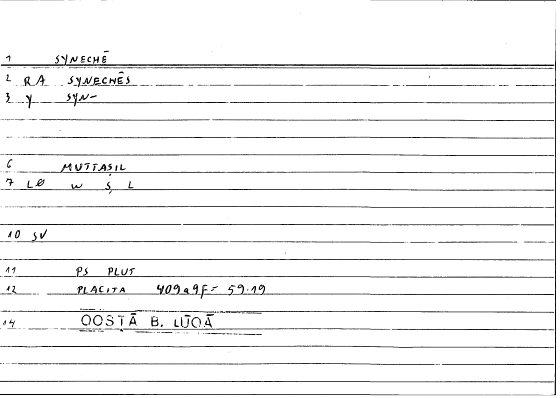 1 SYNECHĒ
2 RA SYNECHĒS
3 Y SYN-
6 MUTTAṢIL
7 LØ w ṣ L
10 SV
11 PS PLUT
12 PLACITA 409a9f = 59.19
14 QOSṬĀ B. LŪQĀ